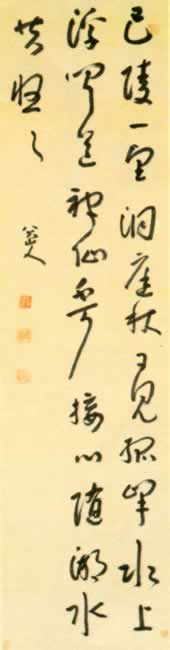 巴陵一望洞庭秋日見孤峯水上
浮聞道神仙不可接心随湖水
共悠々
八大山人